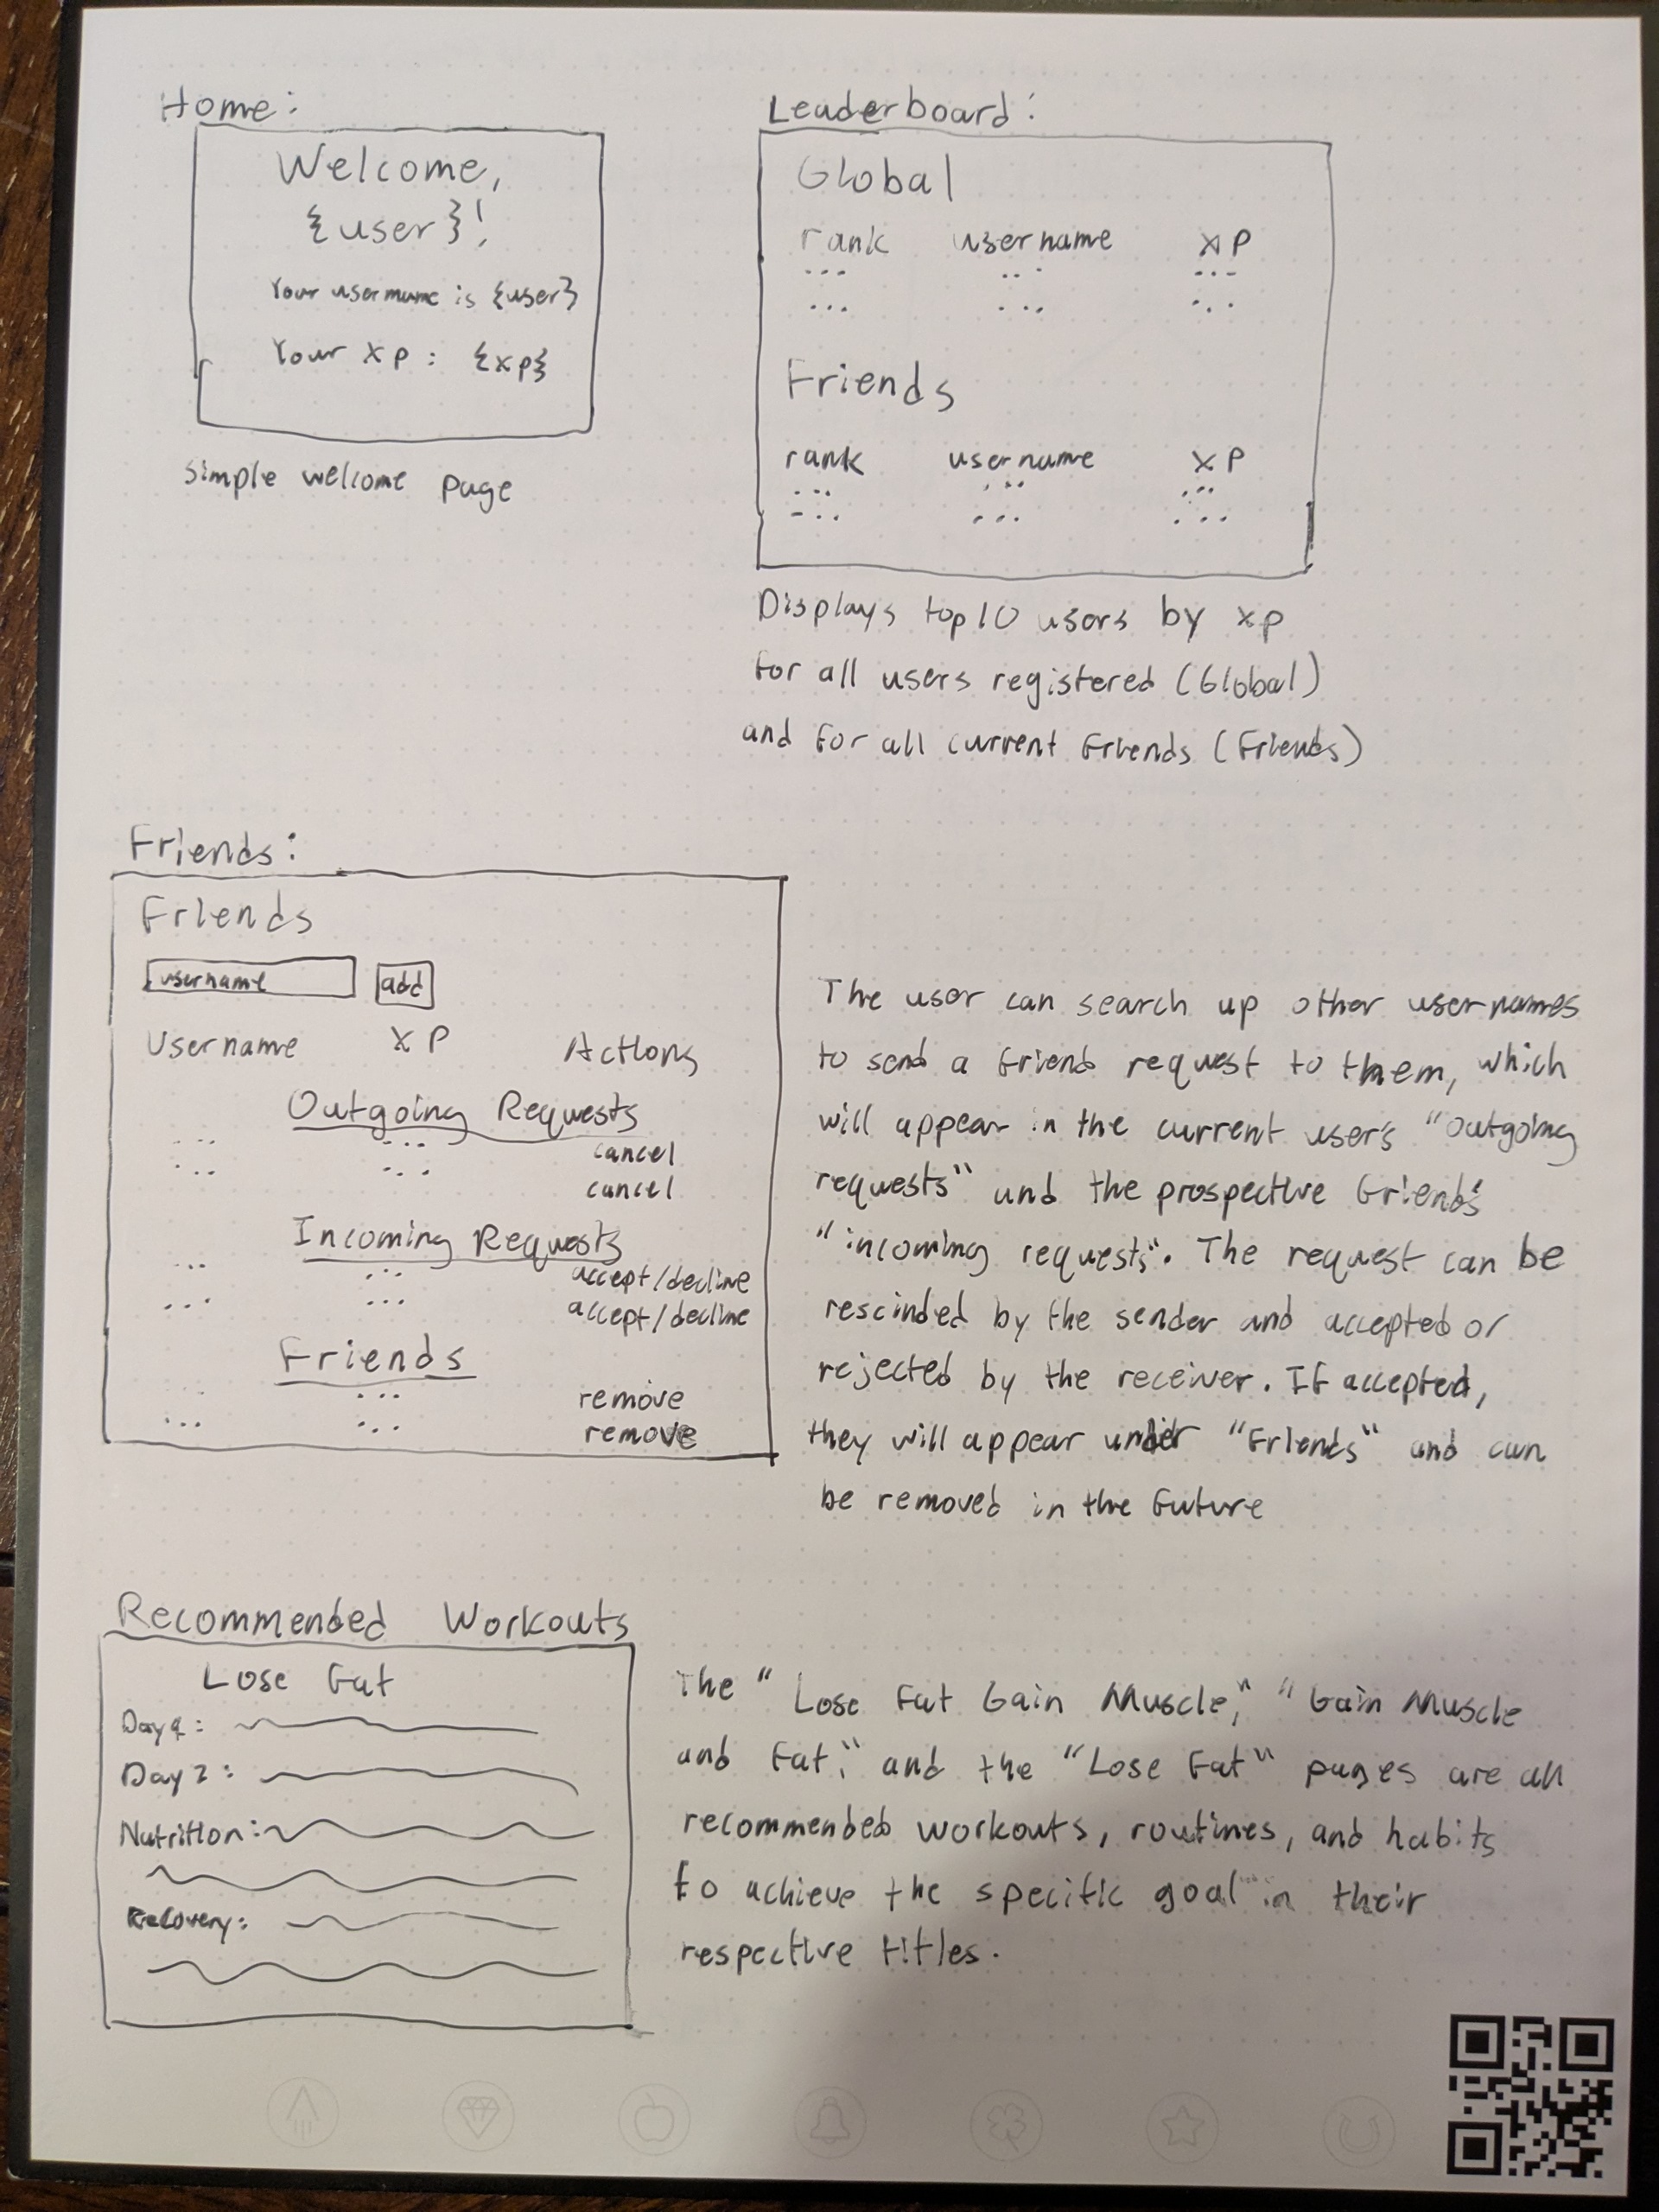 Home:
Welcome,
{user}!
Your username is {user}
Your xp: {xp}
simple welcome page
Leaderboard:
Global
rank username xp
... ... ...
... ... ...
Friends
rank username xp
... ... ...
... ... ...
Displays top 10 users by xp
for all users registered (Global)
and for all current friends (Friends)
Friends:
Friends
username add
Username XP Actions
Outgoing Requests
... ... cancel
... ... cancel
Incoming Requests
... ... accept/decline
... ... accept/decline
Friends
... ... remove
... ... remove
The user can search up other usernames
to send a friend request to them, which
will appear in the current user's "outgoing
requests" and the prospective friends'
"incoming requests". The request can be
rescinded by the sender and accepted or
rejected by the receiver. If accepted,
they will appear under "Friends" and can
be removed in the future
Recommended Workouts
Lose Fat
Day 1:
Day 2:
Nutrition:
Recovery:
The "Lose Fat Gain Muscle," "Gain Muscle
and Fat," and the "Lose Fat" pages are all
recommended workouts, routines, and habits
to achieve the specific goal in their
respective titles.